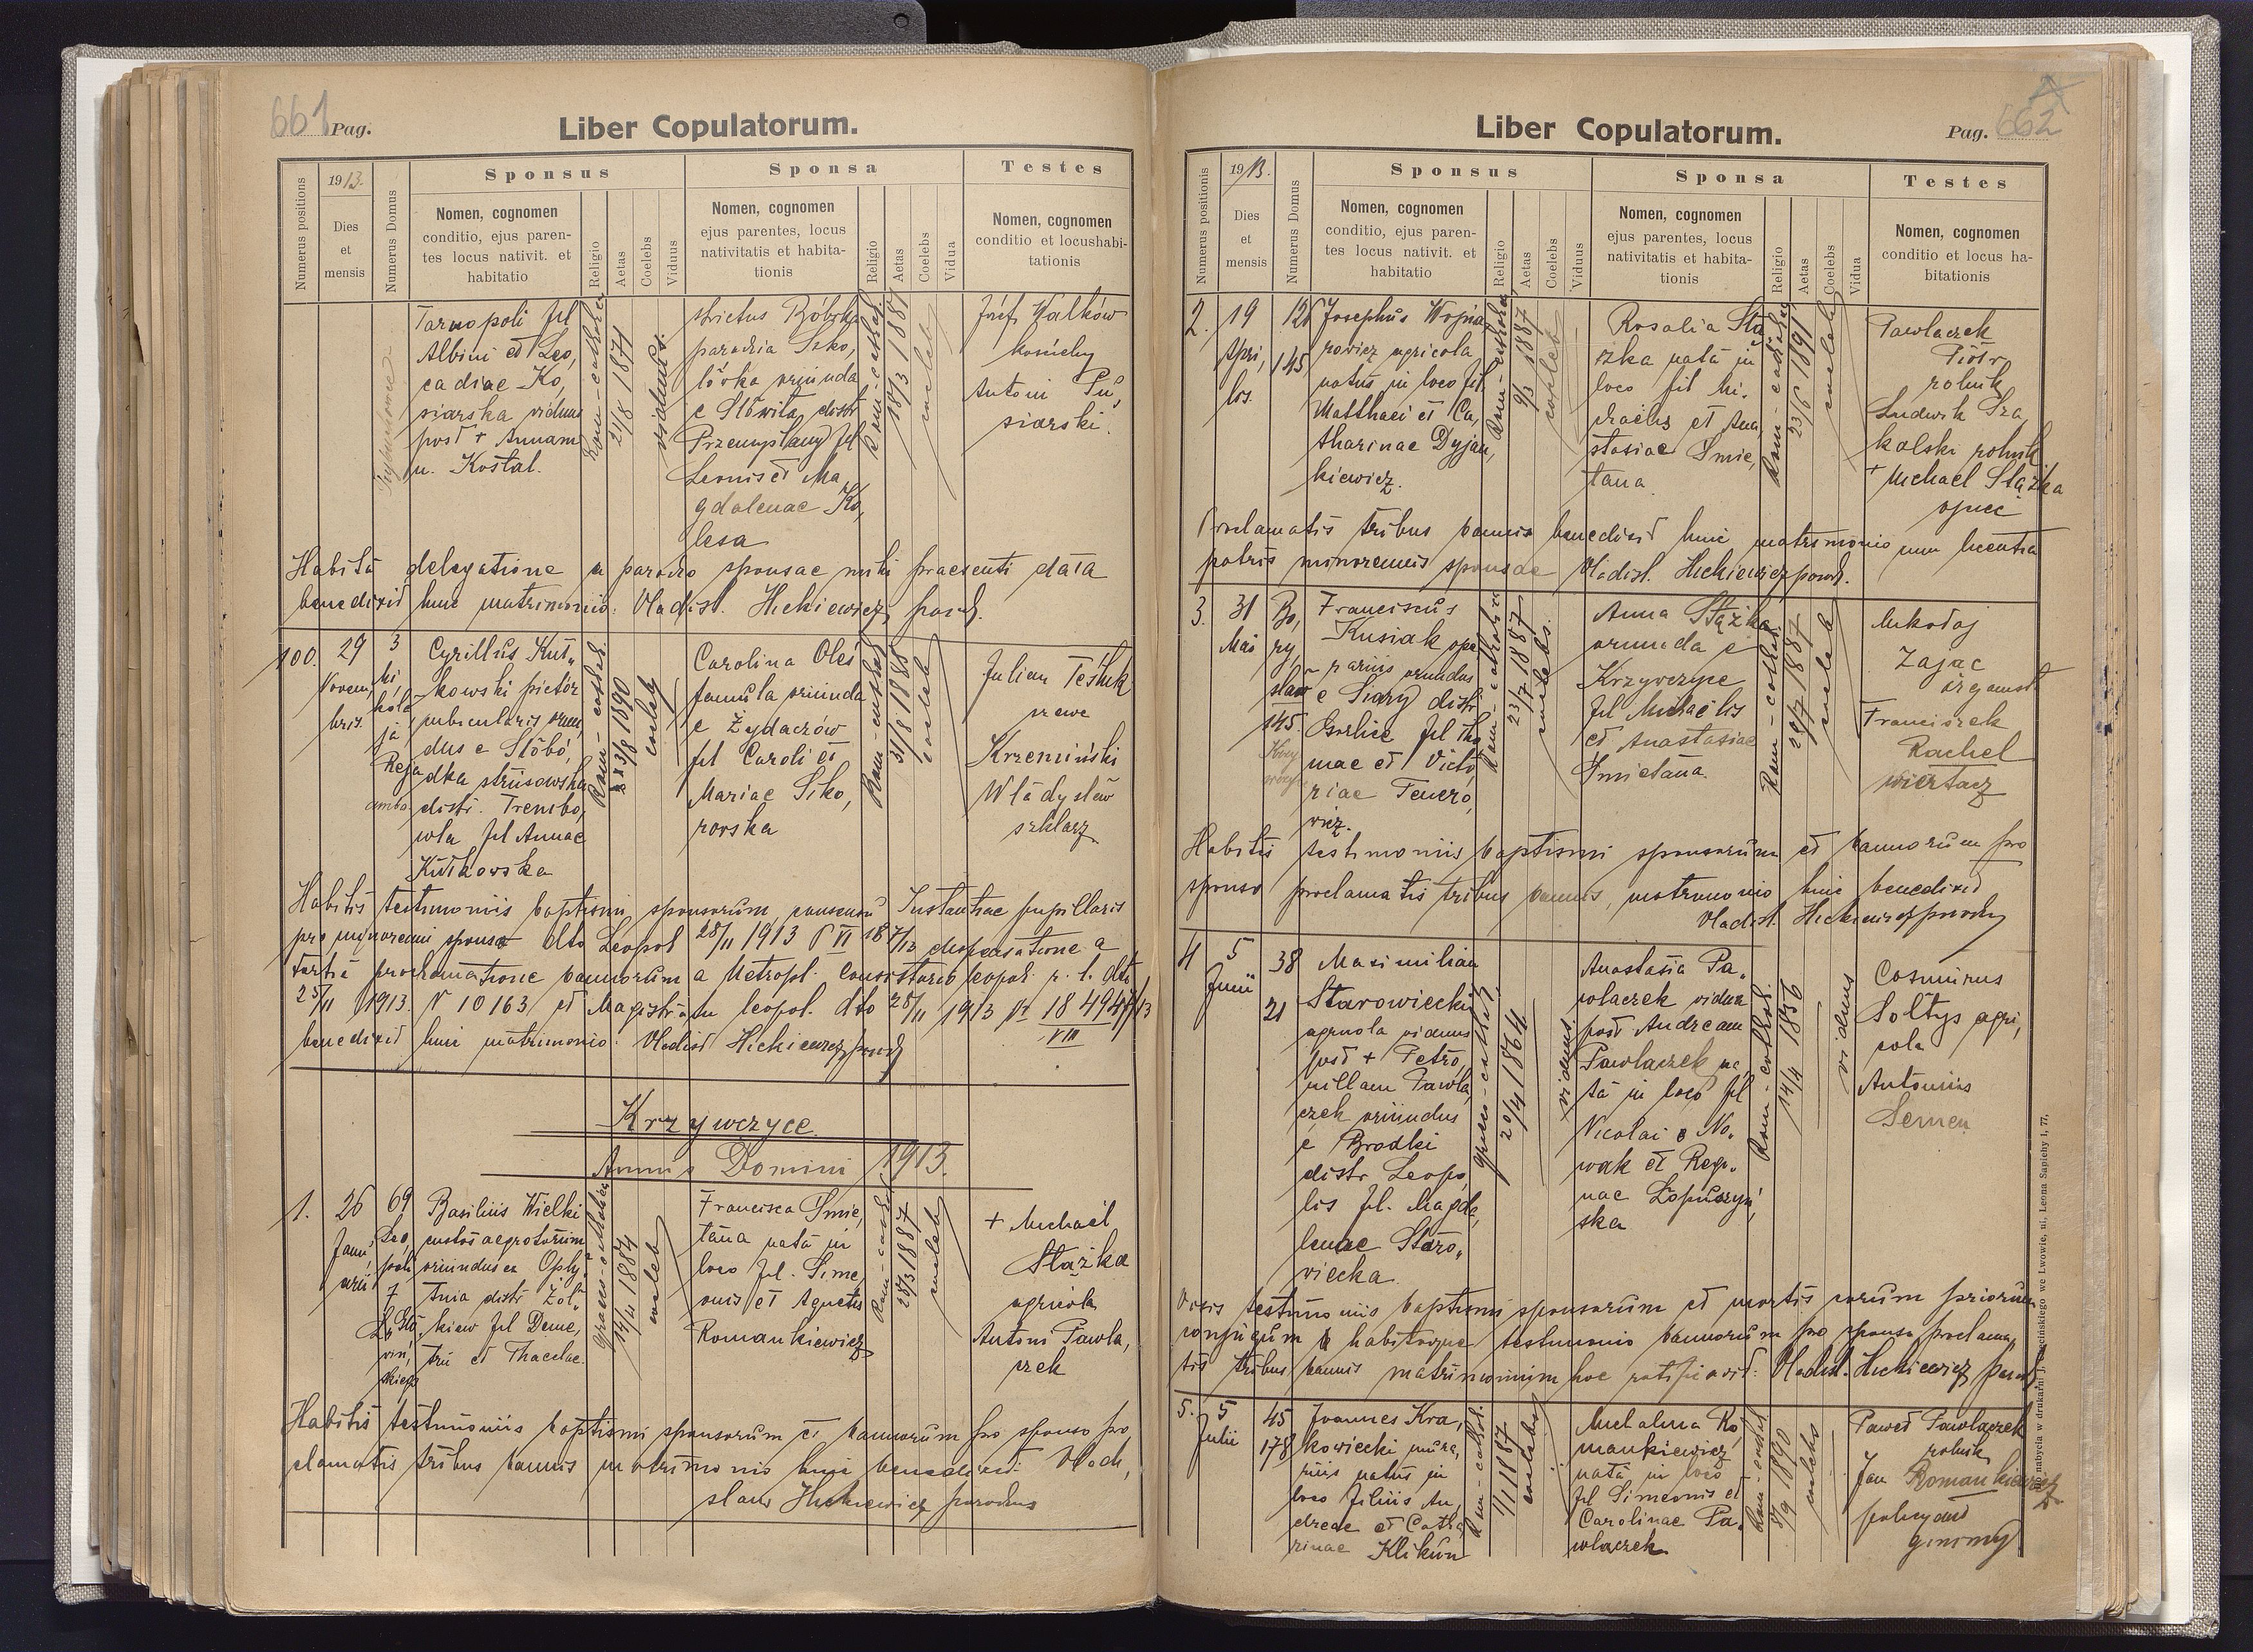 661 Pag.
Liber Copulatorum.
Numerus positionis
1913.
Dies
et
mensis
Numerus Domus
Sponsus
Nomen, cognomen
conditio, ejus paren-
tes locus nativit. et
habitatio
Religio
Aetas
Coelebs
Viduus
Sponsa
Nomen, cognomen
ejus parentes, locus
nativitatis et habita-
tionis
Religio
Aetas
Coelebs
Vidua
Testes
Nomen, cognomen
conditio et locushabi-
tationis
Tarnopoli fil
Albini et Leo,
cadiae Ko,
siarska viduus
post + Annam
n. Kostal.
Rom-cathol.
21/8 1871
viduus.
strictus Bóbrka
parochia Szko,
lórka oriunda
e Słowita distr
Przemyślany fil
Leonis et Ma
gdalenae Ko,
lesa
Rom-cathol.
18/3 1887
coeleb
Józef Walków
Antoni Pu,
siarski.
Habitâ delegatione a parocho sponsae mihi praesenti data
benedixit huic matrimonio: Vladisl. Hickiewicz paroch.
100.
29
Novem,
bris.
3
Mi,
kola
ja
Reja
Cyrillus Kut,
kowski pictor
cubicularis oriun,
dus e Słobó,
dka strusowska
distr. Trembo,
wla fil Annae
Kutkowska
Rom-cathol.
23/8 1890
coeleb
Carolina Oleś
famula oriunda
e Żydaczów
fil Caroli et
Mariae Siko,
rowska
Rom-cathol.
31/8 1888
coeleb
Julian Teśluk
Krzemiński
Władysław
szklarz
Habitis testimoniis baptismi sponsorum, consensu Instantiae pupillaris
pro minorenni sponso dto Leopol 28/11 1913 P VI dispensatione a
tertia proclamatione bannorum a Metropol. Consistorio leopol. r. l. dto
25/11 1913. N 10163, et Magistratu leopol. dto 28/11 1913 N 18494/13
VIII
benedixit huic matrimonio: Vladisl Hickiewicz paroch
Krzywczyce.
Annus Domini 1913.
1.
26
Janu,
arii
69
Leo,
poli
7
Basilius Wielki
custos aegrotorum
oriundus ex Opły,
tnia distr Żół,
kiew fil Deme,
trii et Thaeclae.
graeco-cathol.
14/4 1884
coeleb
Francisca Śmie,
tana nata in
loco fil. Sime,
onis et Agnetis
Romankiewicz
Rom-cathol.
28/3 1887
coeleb
+ Michaël
Stążka
agricola
Antoni Pawla,
czek
Habitis testimoniis baptismi sponsorum et bannorum pro sponso pro,
clamatis tribus bannis matrimonio huic benedixit Vladi,
slaus Hickiewicz parochus
Liber Copulatorum.
Pag. 662
Numerus positionis
1913.
Dies
et
mensis
Numerus Domus
Sponsus
Nomen, cognomen
conditio, ejus paren-
tes locus nativit. et
habitatio
Religio
Aetas
Coelebs
Viduus
Sponsa
Nomen, cognomen
ejus parentes, locus
nativitatis et habita-
tionis
Religio
Aetas
Coelebs
Vidua
Testes
Nomen, cognomen
conditio et locus ha-
bitationis
2.
19
Apri,
lis
126
145
Josephus Wojna,
rowicz agricola
natus in loco fil
Matthaei et Ca,
tharinae Dyjan,
kiewicz.
Rom-cathol
9/3 1887
coeleb
Rosalia Stą
żka nata in
loco fil Mi,
chaëlis et Ana
stasiae Śmie,
tana.
Rom-cathol
23/6 1891
coeleb
Pawlaczek
Piotr
rolnik
Ludwik Sza,
kalski rolnik
+ Michael Stążka
ojciec
Proclamatis tribus bannis benedixit huic matrimonio cum licentia
patris minorennis sponsae Vladisl. Hickiewicz paroch.
3.
31
Mai
Bo,
ry,
sław
145.
Franciscus
Kusiak ope
rarius oriundus
e Siary distr
Gorlice fil Tho
mae et Victo
riae Tenero,
wicz.
Rom-cathol
23/7 1887
coelebs.
Anna Stążka
oriunda e
Krzywczyce
fil Michaëlis
et Anastasiae
Śmietana.
Rom-cathol.
28/7 1887
coeleb
Mikołaj
Zając
Franciszek
Rachel
wiertacz
Habitis testimoniis baptismi sponsorum et bannorum pro
sponso proclamatis tribus bannis, matrimonio huic benedixit
Vladisl. Hickiewicz paroch
4
5
Junii
38
21
Maximilian
Starowiecki
agricola viduus
post + Petro,
nillam Pawla,
czek oriundus
e Brodki
distr Leopo,
lis fil. Magda,
lenae Staro,
wiecka.
graeco-cathol.
20/4 1864
viduus
Anastasia Pa,
wlaczek vidua
post Andream
Pawlaczek na,
ta in loco fil
Nicolai No,
wak et Regi,
nae Łopuszyń,
ska
Rom-cathol.
14/4 1856
viduus
Casimirus
Sołtys agri,
cola
Antonius
Semen
Visis testimoniis baptismi sponsorum et mortis eorum priorum
conjugum habitoque testimonio bannorum pro sponso proclama,
tis tribus bannis matrimonium hoc ratificavit: Vladisl. Hickiewicz paroch.
5.
5
Julii
45
178
Joannes Kra,
kowiecki mura,
rius natus in
loco filius An,
dreae et Catha,
rinae Klikün
Rom-cathol.
1/1 1887
coelebs
Michalina Ro,
mankiewicz
nata in loco
fil Simeonis et
Carolinae Pa,
wlaczek
Rom-cathol
8/9 1890
coelebs
Paweł Pawlaczek
rolnik
Jan Romankiewicz
policyant
gminny
nabycia w drukarni J. Chęcińskiego we Lwowie, ul. Leona Sapiehy l. 77.